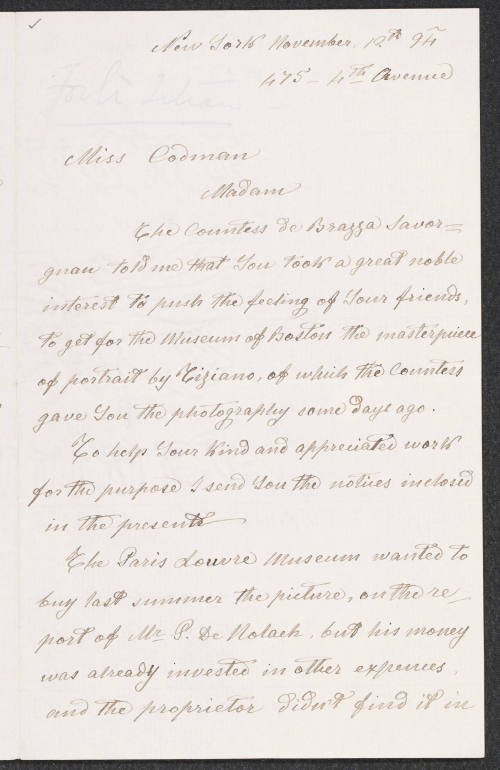 New York November. 12th 94
475 - 4th Avenue
Miss Codman
Madam
The Countess de Brazza Savor=
gnau told me that You took a great noble
interest to push the feeling of Your friends,
to get for the Museum of Boston the masterpiece
of portrait by Tiziano, of which the Countess
gave You the photography some days ago.
To help Your kind and appreciated work
for the purpose I send You the notices inclosed
in the presents
The Paris Louvre Museum wanted to
buy last summer the picture, on the re_
port of Mr P. De Nolach, but his money
was already invested in other expences,
and the proprietor didn't find it in